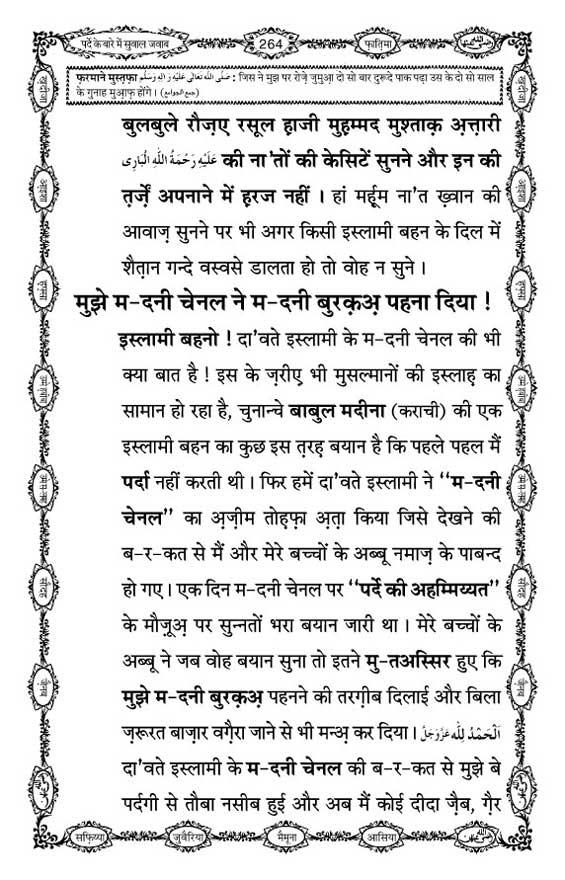 पर्दे के बारे में सुवाल जवाब
264
फ़ातिमा
फ़रमाने मुस्तफ़ा صَلَّى اللّٰهُ تَعَالٰى عَلَيْهِ وَاٰلِهٖ وَسَلَّم : जिस ने मुझ पर रोज़े जुमुआ़ दो सो बार दुरूदे पाक पढ़ा उस के दो सो साल
के गुनाह मुआ़फ़ होंगे । (جمع الجوامع)
बुलबुले रौज़ए रसूल ह़ाजी मुह़म्मद मुश्ताक़ अ़त्त़ारी
عَلَيْهِ رَحْمَةُ اللّٰهِ الْبَارِى की ना'तों की केसिटें सुनने और इन की
त़र्ज़ें अपनाने में ह़रज नहीं । हां मर्ह़ूम ना'त ख़्वान की
आवाज़ सुनने पर भी अगर किसी इस्लामी बहन के दिल में
शैत़ान गन्दे वस्वसे डालता हो तो वोह न सुने ।
मुझे म-दनी चेनल ने म-दनी बुरक़अ़ पहना दिया !
इस्लामी बहनो ! दा'वते इस्लामी के म-दनी चेनल की भी
क्या बात है ! इस के ज़रीए भी मुसल्मानों की इस्लाह़ का
सामान हो रहा है, चुनान्चे बाबुल मदीना (कराची) की एक
इस्लामी बहन का कुछ इस त़रह़ बयान है कि पहले पहल मैं
पर्दा नहीं करती थी । फिर हमें दा'वते इस्लामी ने “म-दनी
चेनल” का अ़ज़ीम तोह़फ़ा अ़त़ा किया जिसे देखने की
ब-र-कत से मैं और मेरे बच्चों के अब्बू नमाज़ के पाबन्द
हो गए । एक दिन म-दनी चेनल पर “पर्दे की अहम्मिय्यत”
के मौज़ूअ़ पर सुन्नतों भरा बयान जारी था । मेरे बच्चों के
अब्बू ने जब वोह बयान सुना तो इतने मु-तअस्सिर हुए कि
मुझे म-दनी बुरक़अ़ पहनने की तरग़ीब दिलाई और बिला
ज़रूरत बाज़ार वग़ैरा जाने से भी मन्अ़ कर दिया । اَلْحَمْدُ لِلّٰه عَزَّوَجَلَّ
दा'वते इस्लामी के म-दनी चेनल की ब-र-कत से मुझे बे
पर्दगी से तौबा नसीब हुई और अब मैं कोई दीदा ज़ैब, ग़ैर
सफ़िय्या
जुवैरिया
मैमूना
आसिया